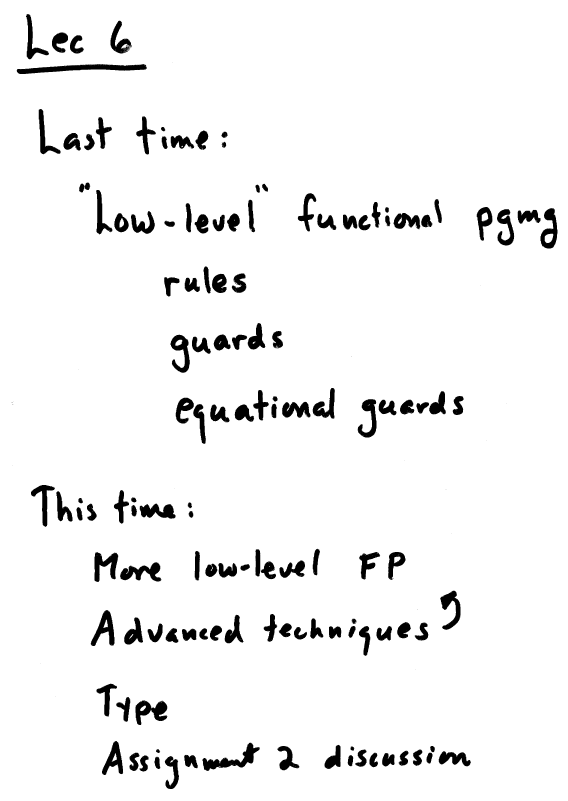 Lec 6
Last time:
"Low-level" functional pgmg
rules
guards
equational guards
This time:
More low-level FP
Advanced techniques
Type
Assignment 2 discussion